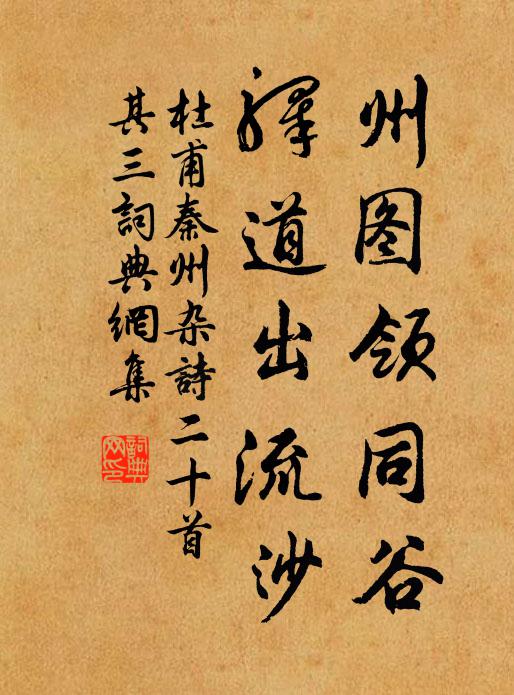 州图领同谷
驿道出流沙
杜甫秦州杂詩二十首
其三詞典網集
詞典
网印